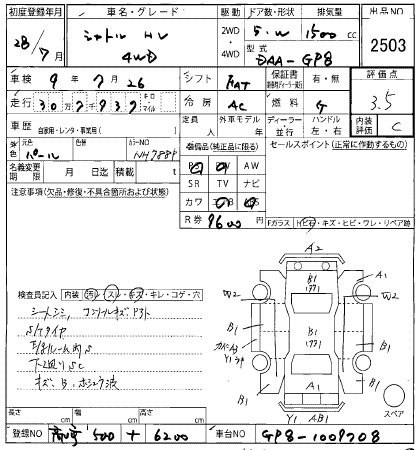 初度登録年月 車名・グレード 駆動 ドア数・形状 排気量 出品NO
28/7月 シャトル HV 4WD 2WD・4WD 5・W 1500cc 2503
型式 DAA-GP8
車検 9年7月26 シフト FAT 保証書 有・無 評価点
走行 307937 キロ・マイル 冷房 AC 燃料 G 3.5
車歴 自家用・レンタ・事業用( ) 定員 人 外車モデル 年 ディーラー・並行 ハンドル 左・右 内装評価 C
元色 パール 色替 カラーNO NH788P
装備品(純正品に限る) セールスポイント(正常に作動するもの)
PS PW AW
名義変更期限 月 日迄 積載 t
SR TV ナビ
注意事項(欠品・修復・不具合箇所および状態)
カワ エアB ABS
R券 9600
Fガラス トビ石・キズ・ヒビ・ワレ・リペア跡
A2
A1
B1
W2
W2
B1
B1
B1
A1
B1
Y1 AB1
スペア
検査員記入 内装 汚・スレ・キズ・キレ・コゲ・穴
S/タイヤ
下廻りSC
キズ、B、
長さ cm 幅 cm 高さ cm
登録NO 500 ナ 6200 車台NO GP8-1009708